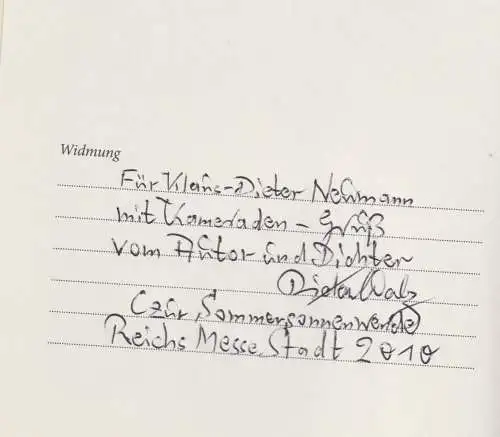 Widmung
Für Klaus-Dieter Neumann
mit Kameraden-Gruß
vom Autor und Dichter
Dieter Walz
(zur Sommersonnenwende)
Reichs Messe Stadt 2010